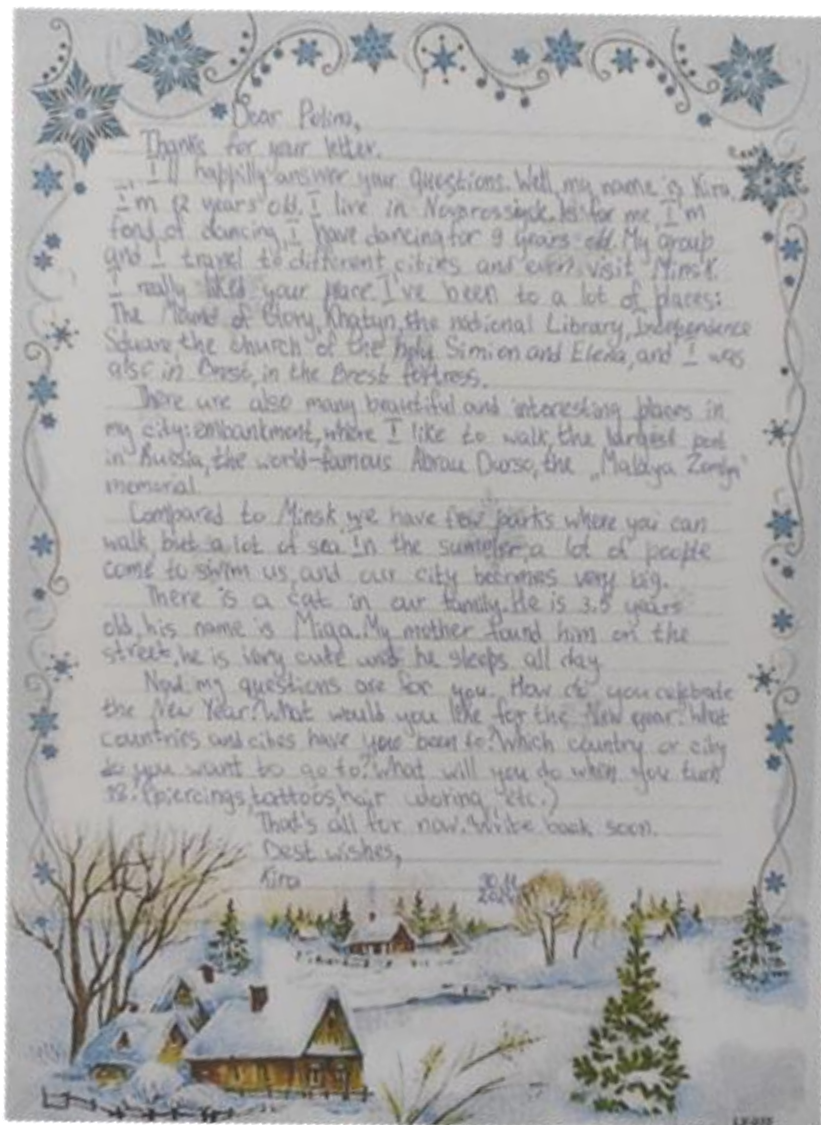 Dear Polina,
Thanks for your letter.
I'll happilly answer your questions. Well, my name is Kira,
I'm 12 years old. I live in Novorossiysk. As for me, I'm
fond of dancing, I have dancing for 9 years old. My group
and I travel to different cities and even visit Minsk.
I really liked your place. I've been to a lot of places:
The Mound of Glory, Khatyn, the national Library, Independence
Square, the church of the holy Simion and Elena, and I was
also in Brest, in the Brest fortress.
There are also many beautiful and interesting places in
my city: embankment, where I like to walk, the largest port
in Russia, the world-famous Abrau Durso, the „Malaya Zemlya"
memorial.
Compared to Minsk we have few parks where you can
walk, but a lot of sea. In the summer, a lot of people
come to swim us, and our city becomes very big.
There is a cat in our family. He is 3.5 years
old, his name is Miga. My mother found him on the
street, he is very cute and he sleeps all day.
Now my questions are for you. How do you celebrate
the New Year? What would you like for the New year? What
countries and cities have you been to? Which country or city
do you want to go to? What will you do when you turn
18? (piercings, tattoos, hair coloring etc.)
That's all for now. Write back soon.
Best wishes,
Kira 30.11